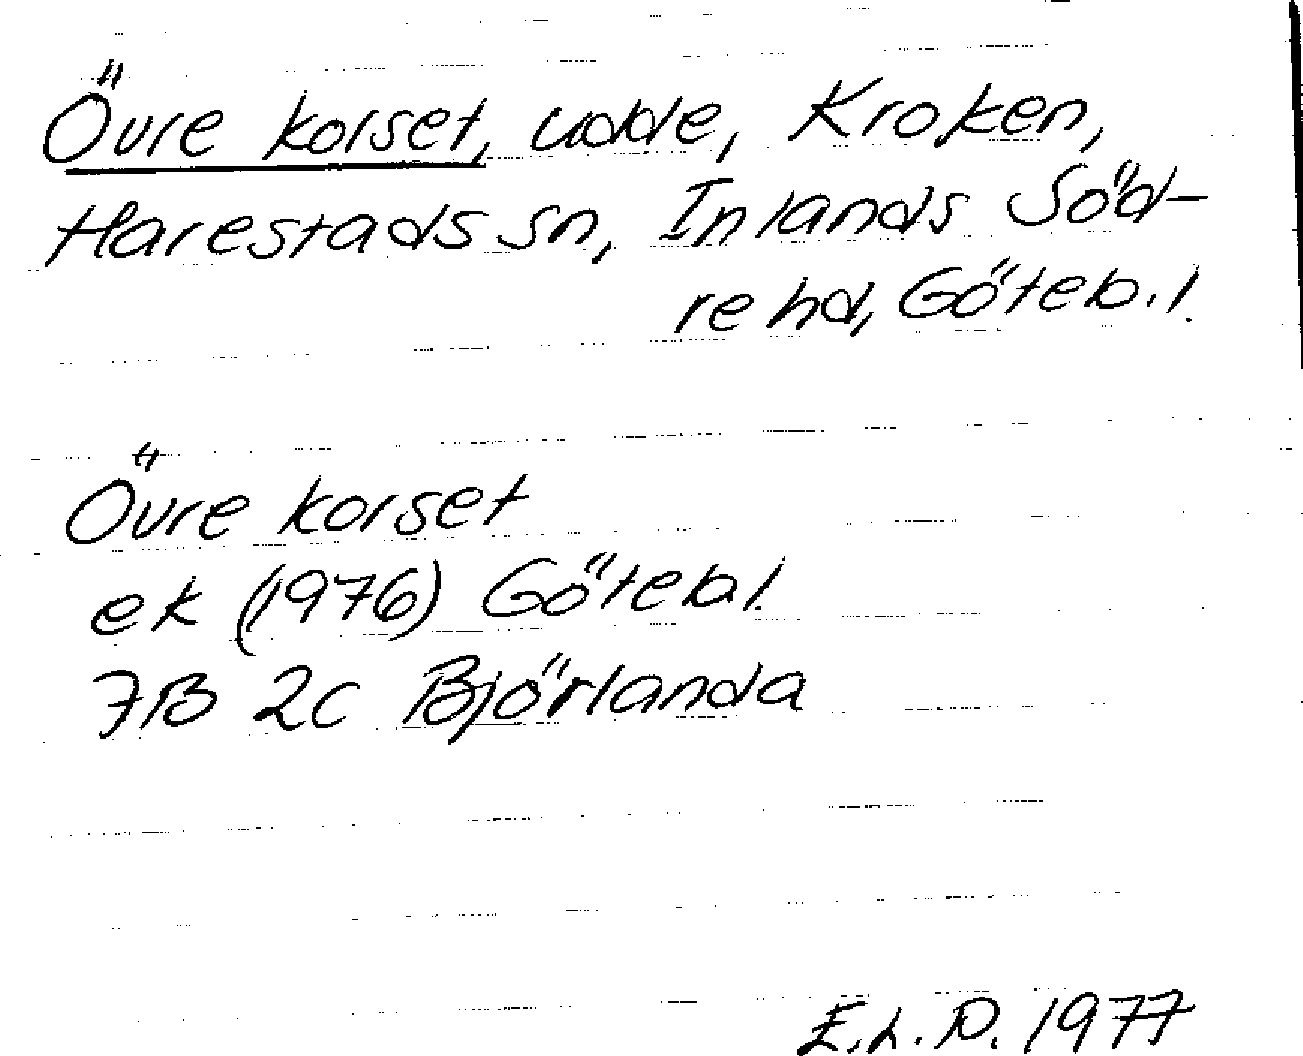 Övre korset, udde, Kroken,
Harestads sn, Inlands Söd-
re hd, Göteb.l.
Övre korset
ek (1976) Göteb l.
7B 2c Björlanda
E.L.D. 1977